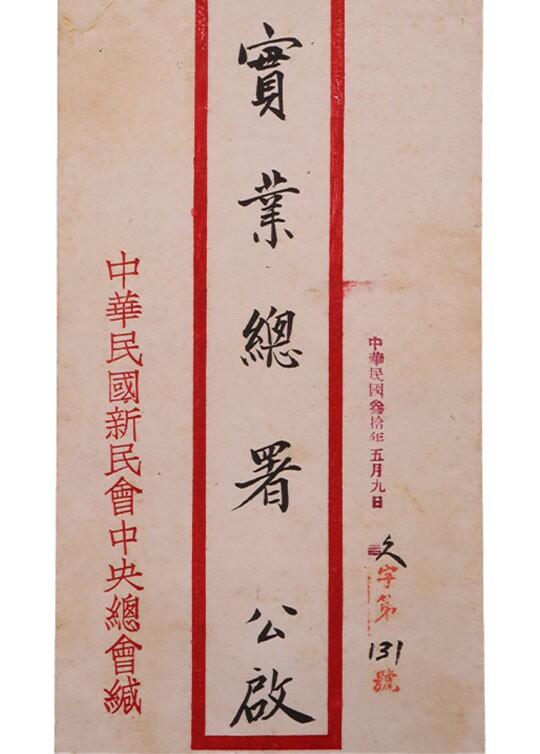 中華民國叁拾年五月九日
字第131號
實業總署 公啟
中華民國新民會中央總會緘